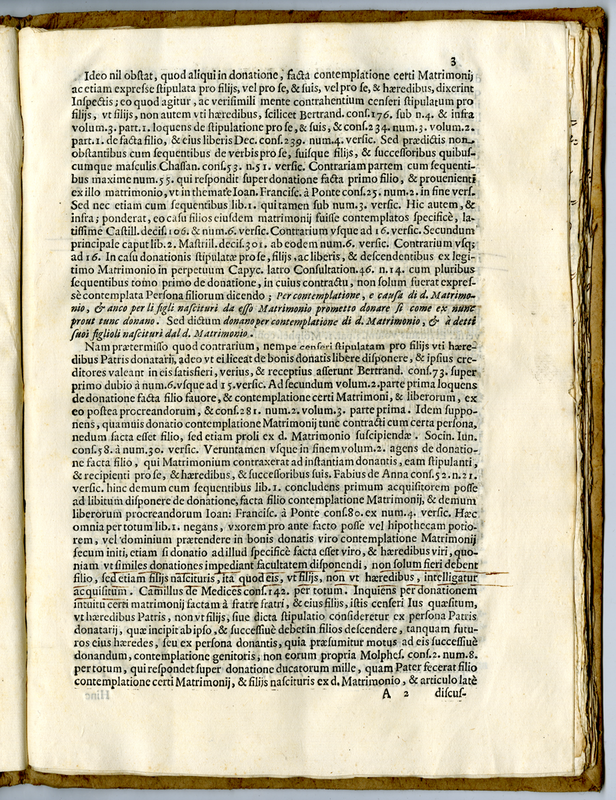 3
Ideo nil obstat, quod aliqui in donatione, facta contemplatione certi Matrimonij
ac etiam expresse stipulata pro filijs, vel pro se, & suis, vel pro se, & hæredibus, dixerint
Inspectis; eo quod agitur, ac verisimili mente contrahentium censeri stipulatum pro
filijs, vt filijs, non autem vti hæredibus, scilicet Bertrand. cons. 176. sub n. 4. & infra
volum. 3. part. 1. loquens de stipulatione pro se, & suis, & cons. 234. num. 3. volum. 2.
part. 1. de facta filio, & eius liberis Dec. cons. 239. num. 4. versic. Sed prædictis non
obstantibus cum sequentibus de verbis pro se, suisque filijs, & successoribus quibus-
cumque masculis Chassan. cons. 53. n. 51. versic. Contrariam partem cum sequenti-
bus maxime num. 55. qui respondit super donatione facta primo filio, & prouenienti
ex illo matrimonio, vt in themate Ioan. Francisc. à Ponte cons. 25. num. 2. in fine vers.
Sed nec etiam cum sequentibus lib. 1. qui tamen sub num. 3. versic. Hic autem, &
infra; ponderat, eo casu filios eiusdem matrimonij fuisse contemplatos specificè, la-
tissimè Castill. decis. 106. & num. 6. versic. Contrarium vsque ad 16. versic. Secundum
principale caput lib. 2. Mastrill. decis. 301. ab eodem num. 6. versic. Contrarium vsq;
ad 16. In casu donationis stipulatæ pro se, filijs, ac liberis, & descendentibus ex legi-
timo Matrimonio in perpetuum Capyc. latro Consultation. 46. n. 14. cum pluribus
sequentibus tomo primo de donatione, in cuius contractu, non solum fuerat expres-
sè contemplata Persona filiorum dicendo; Per contemplatione, e causa di d. Matrimo-
nio, & anco per li figli nascituri da esso Matrimonio prometto donare si come ex nunc
prout tunc donano. Sed dictum donano per contemplatione di d. Matrimonio, & à detti
suoi figlioli nascituri dal d. Matrimonio.
Nam prætermisso quod contrarium, nempe censeri stipulatam pro filijs vti hære-
dibus Patris donatarij, adeo vt ei liceat de bonis donatis libere disponere, & ipsius cre-
ditores valeant in eis satisfieri, verius, & receptius asserunt Bertrand. cons. 73. super
primo dubio à num. 6. vsque ad 15. versic. Ad secundum volum. 2. parte prima loquens
de donatione facta filio fauore, & contemplatione certi Matrimoni, & liberorum, ex
eo postea procreandorum, & cons. 281. num. 2. volum. 3. parte prima. Idem suppo-
niens, quamuis donatio contemplatione Matrimonij tunc contracti cum certa persona,
nedum facta esset filio, sed etiam proli ex d. Matrimonio suscipiendæ. Socin. Iun.
cons. 58. à num. 30. versic. Veruntamen vsque in finem volum. 2. agens de donatio-
ne facta filio, qui Matrimonium contraxerat ad instantiam donantis, eam stipulanti,
& recipienti pro se, & hæredibus, & successoribus suis. Fabius de Anna cons. 52. n. 21.
versic. hinc demum cum sequentibus lib. 1. concludens primum acquisitorem posse
ad libitum disponere de donatione, facta filio contemplatione Matrimonij, & demum
liberorum procreandorum Ioan: Francisc. à Ponte cons. 80. ex num. 4. versic. Hæc
omnia per totum lib. 1. negans, vxorem pro ante facto posse vel hipothecam potio-
rem, vel dominium prætendere in bonis donatis viro contemplatione Matrimonij
secum initi, etiam si donatio ad illud specificè facta esset viro, & hæredibus viri, quo-
niam vt similes donationes impediant facultatem disponendi, non solum fieri debent
filio, sed etiam filijs nascituris, ita quod eis, vt filijs, non vt hæredibus, intelligatur
acquisitum. Camillus de Medices cons. 142. per totum. Inquiens per donationem
intuitu certi matrimonij factam à fratre fratri, & eius filijs, istis censeri Ius quæsitum,
vt hæredibus Patris, non vt filijs, siue dicta stipulatio consideretur ex persona Patris
donatarij, quæ incipit ab ipso, & successiuè debet in filios descendere, tanquam futu-
ros eius hæredes, seu ex persona donantis, quia præsumitur motus ad eis successiuè
donandum, contemplatione genitoris, non eorum propria Molphes. cons. 2. num. 8.
per totum, qui respondet super donatione ducatorum mille, quam Pater fecerat filio
contemplatione certi Matrimonij, & filijs nascituris ex d. Matrimonio, & articulo latè
A 2 discus-